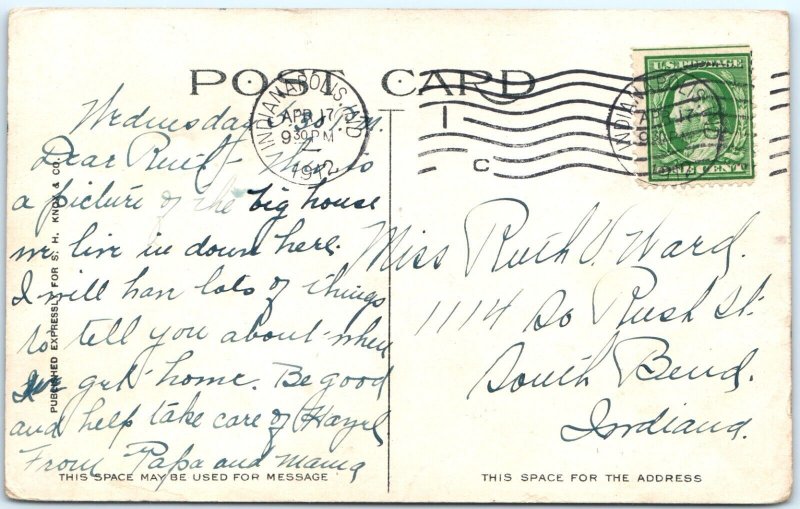 POST CARD
INDIANAPOLIS, IND
APR 17
9 30 PM
1912
U.S. POSTAGE
ONE CENT
Wednesday
Dear Ruth This is
a picture of the big house
we live in down here.
I will have lots of things
to tell you about when
we get home. Be good
and help take care of Hazel
From Papa and Mama
Miss Ruth V. Ward.
1114 So Rush St.
South Bend.
Indiana.
PUBLISHED EXPRESSLY FOR S. H. KNOX & CO.
THIS SPACE MAY BE USED FOR MESSAGE
THIS SPACE FOR THE ADDRESS